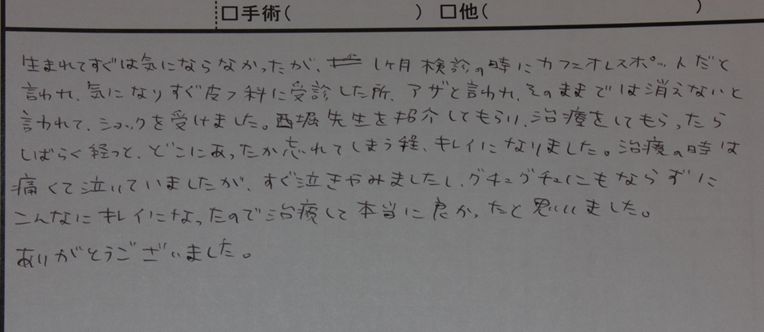 □手術(　　　　　) □他(　　　　　　　　)
生まれてすぐは気にならなかったが、1ヶ月検診の時にカフェオレスポットだと
言われ、気になりすぐ皮フ科に受診した所、アザと言われ、そのままでは消えないと
言われて、ショックを受けました。西堀先生を紹介してもらい、治療をしてもらったら
しばらく経つと、どこにあったか忘れてしまう程、キレイになりました。治療の時は
痛くて泣いていましたが、すぐ泣きやみましたし、グチュグチュにもならずに
こんなにキレイになったので治療して本当に良かったと思いました。
ありがとうございました。